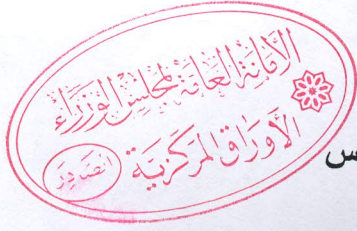 الأمانة العامة لمجلس الوزراء
الأوراق المركزية
الصدور
س